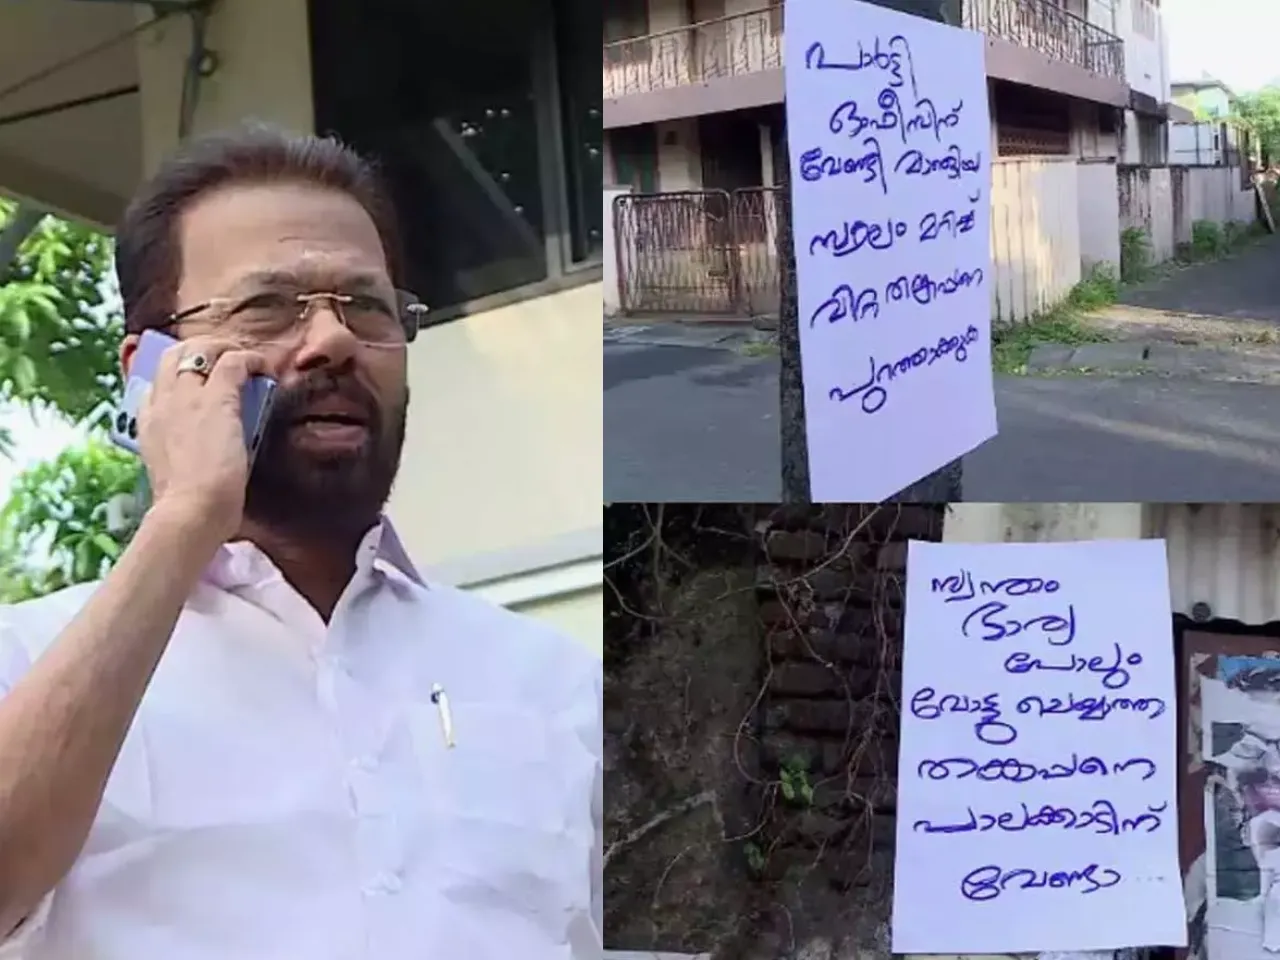 പാർട്ടി
ഓഫീസിന്
വേണ്ടി മാങ്ങിയ
സ്ഥലം മറിച്ച്
വിറ്റ തങ്കപ്പനെ
പുറത്താക്കുക
സ്വന്തം
ഭാര്യ
പോലും
വോട്ടു ചെയ്യാത്ത
തങ്കപ്പനെ
പാലക്കാടിന്
വേണ്ടാ